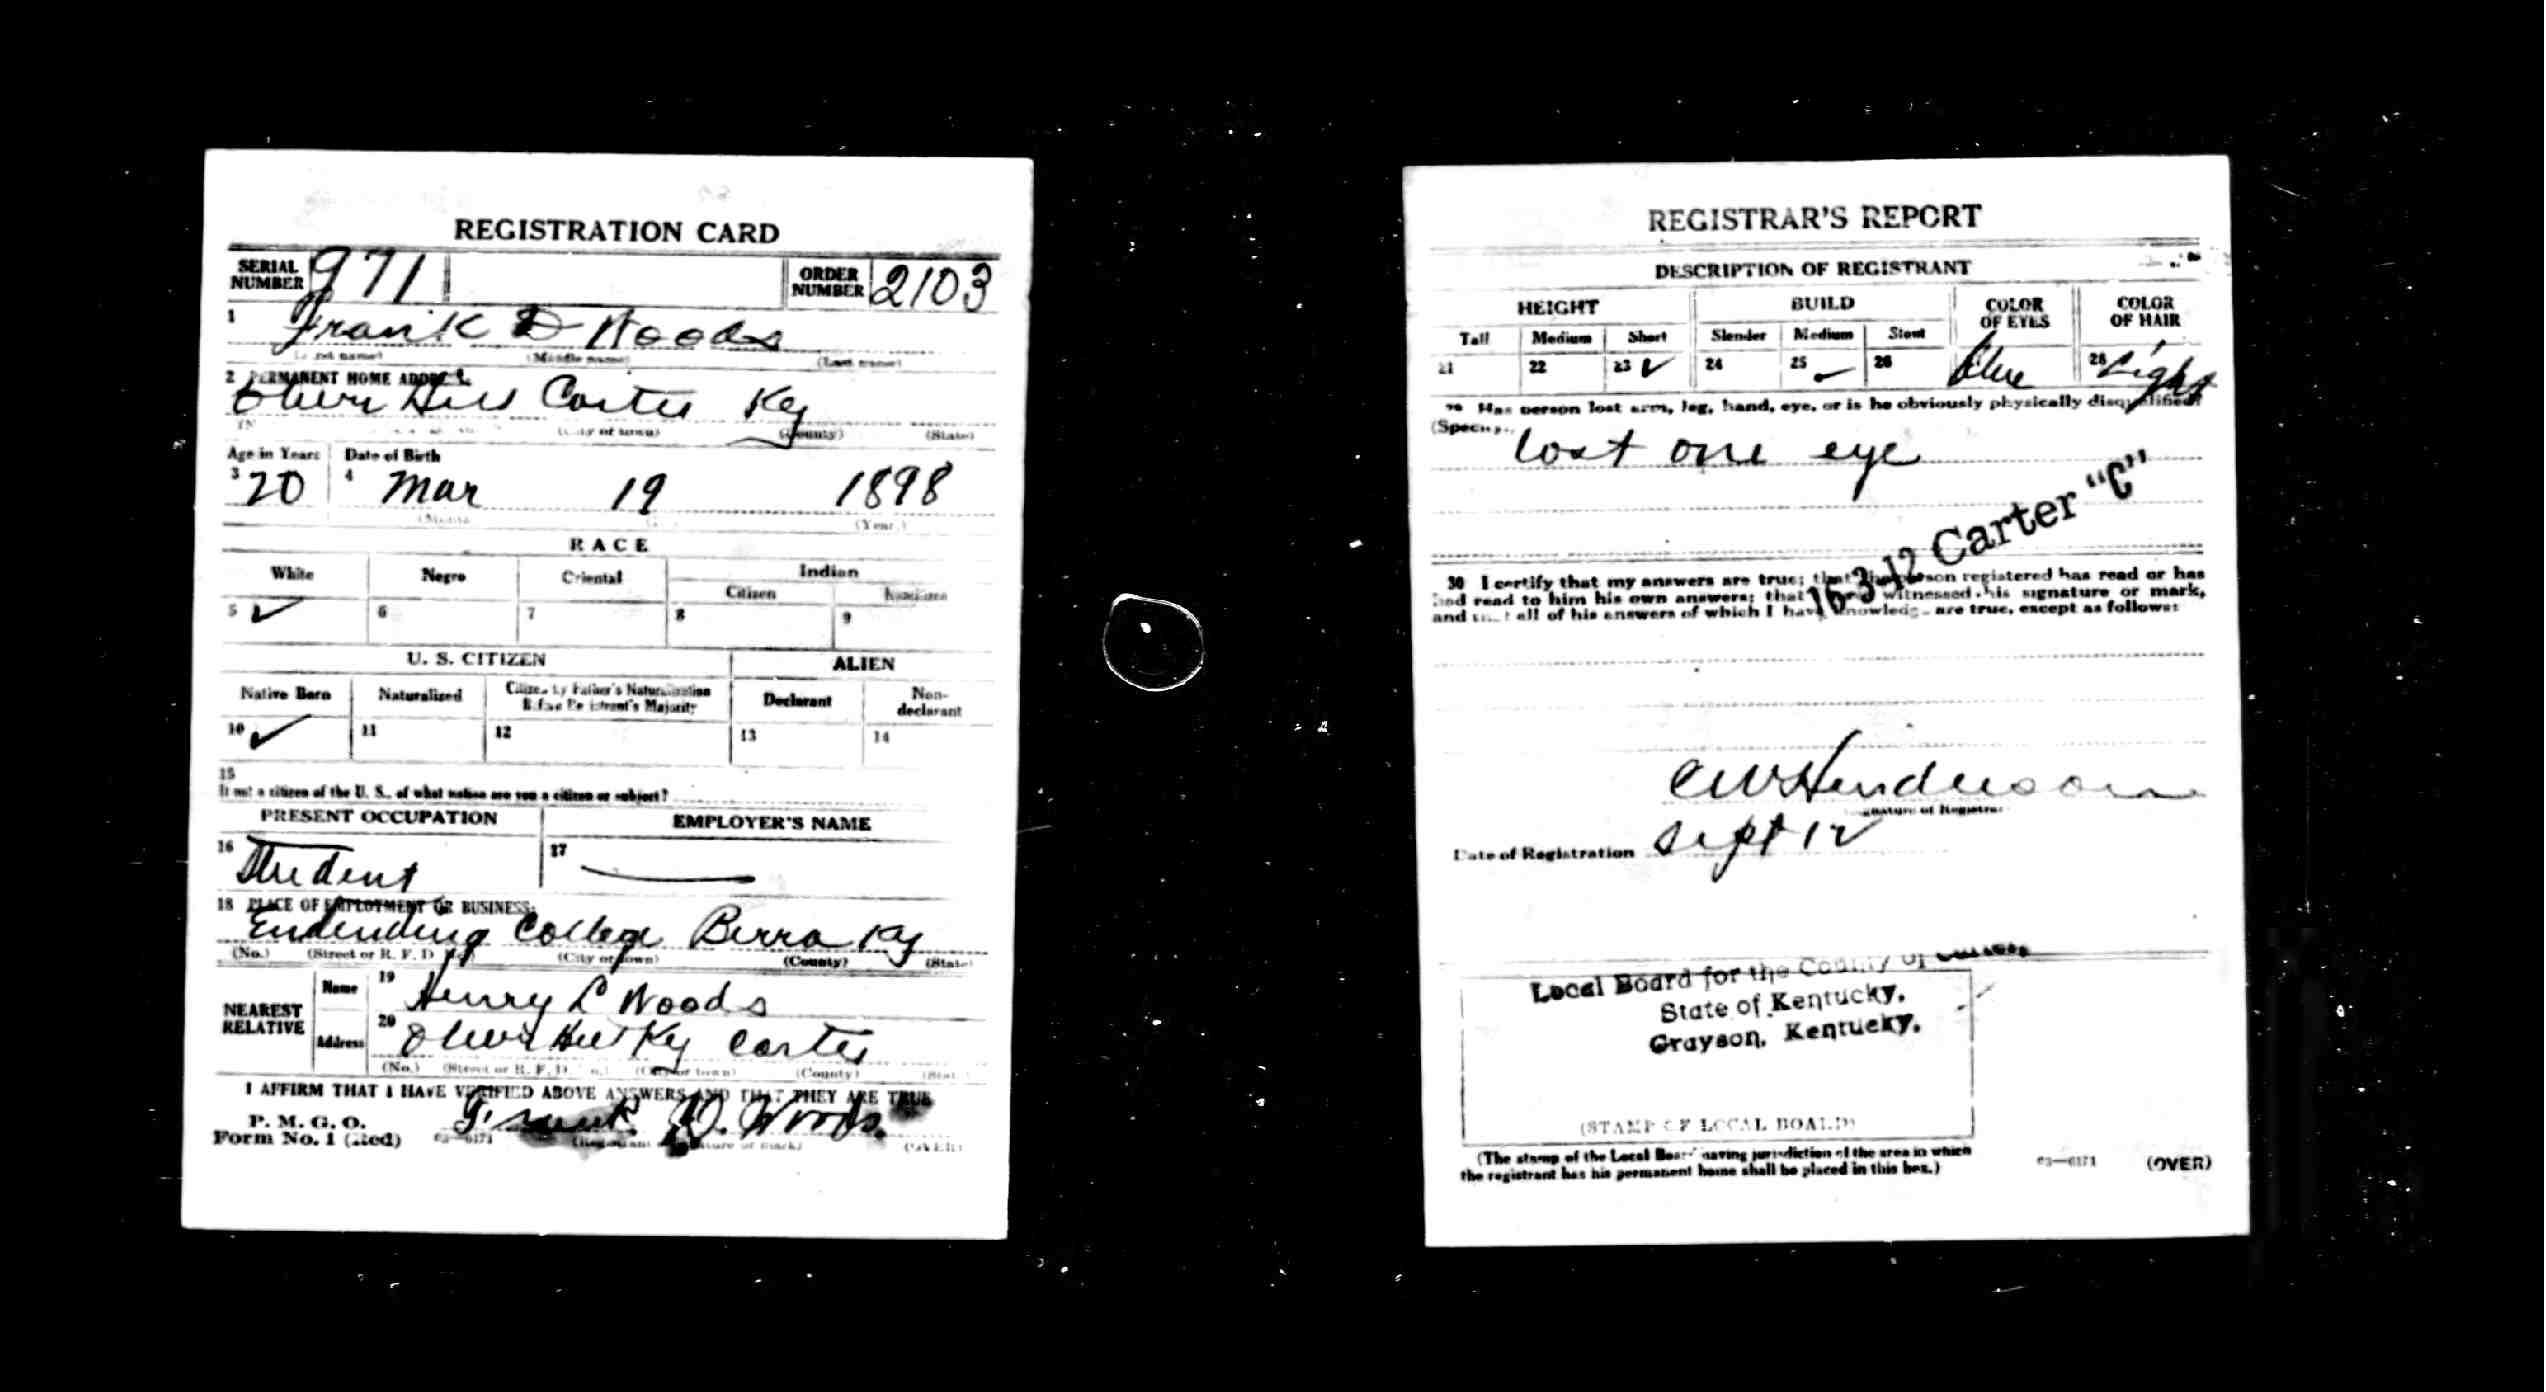 REGISTRATION CARD
SERIAL NUMBER 971 ORDER NUMBER 2103
1 Frank D Woods
(Middle name) (Last name)
2 PERMANENT HOME ADDRESS
Olive Hill Carter Ky
(City or town) (County) (State)
Age in Years Date of Birth
3 20 4 Mar 19 1898
(Year)
RACE
White Negro Oriental Indian
Citizen Noncitizen
5 ✓ 6 7 8 9
U. S. CITIZEN ALIEN
Native Born Naturalized Citizen by Father's Naturalization Before Registrant's Majority Declarant Non-declarant
10 ✓ 11 12 13 14
15
If not a citizen of the U. S., of what nation are you a citizen or subject?
PRESENT OCCUPATION EMPLOYER'S NAME
16 Student 17
18 PLACE OF EMPLOYMENT OR BUSINESS:
College Ky
(No.) (Street or R. F. D. No.) (City or town) (County) (State)
NEAREST RELATIVE
Name 19 Henry L Woods
Address 20 Olive Hill Ky Carter
(No.) (Street or R. F. D. No.) (City or town) (County) (State)
I AFFIRM THAT I HAVE VERIFIED ABOVE ANSWERS AND THAT THEY ARE TRUE
P. M. G. O.
Form No. 1 (Red) 03—6171 Frank D. Woods.
(Registrant's signature or mark) (OVER)
REGISTRAR'S REPORT
DESCRIPTION OF REGISTRANT
HEIGHT BUILD COLOR OF EYES COLOR OF HAIR
Tall Medium Short Slender Medium Stout
21 22 23 ✓ 24 25 ✓ 26 blue 28 Light
29 Has person lost arm, leg, hand, eye, or is he obviously physically disqualified?
(Specify.) lost one eye
16-3-12 Carter "C"
30 I certify that my answers are true; that the person registered has read or has
had read to him his own answers; that I have witnessed his signature or mark,
and that all of his answers of which I have knowledge are true, except as follows:
C W Henderson
Signature of Registrar
Date of Registration Sept 12
Local Board for the County of Carter,
State of Kentucky,
Grayson, Kentucky.
(STAMP OF LOCAL BOARD)
(The stamp of the Local Board having jurisdiction of the area in which
the registrant has his permanent home shall be placed in this box.)
03—6171 (OVER)